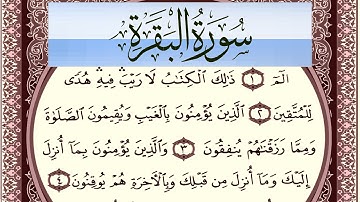 سُورَةُ البَقَرَةِ
الٓمٓ ١ ذَٰلِكَ الْكِتَابُ لَا رَيْبَ ۛ فِيهِ ۛ هُدًى
لِلْمُتَّقِينَ ٢ الَّذِينَ يُؤْمِنُونَ بِالْغَيْبِ وَيُقِيمُونَ الصَّلَاةَ
وَمِمَّا رَزَقْنَاهُمْ يُنفِقُونَ ٣ وَالَّذِينَ يُؤْمِنُونَ بِمَا أُنزِلَ
إِلَيْكَ وَمَا أُنزِلَ مِن قَبْلِكَ وَبِالْآخِرَةِ هُمْ يُوقِنُونَ ٤